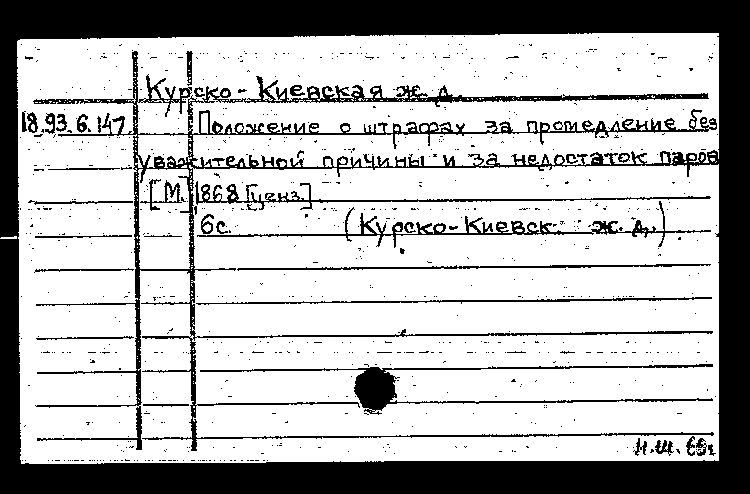 Курско-Киевская ж. д.
18.93.6.147 Положение о штрафах за промедление без
уважительной причины и за недостаток паров
[М.] 1868 [ценз.]
6с. (Курско-Киевск. ж. д.)